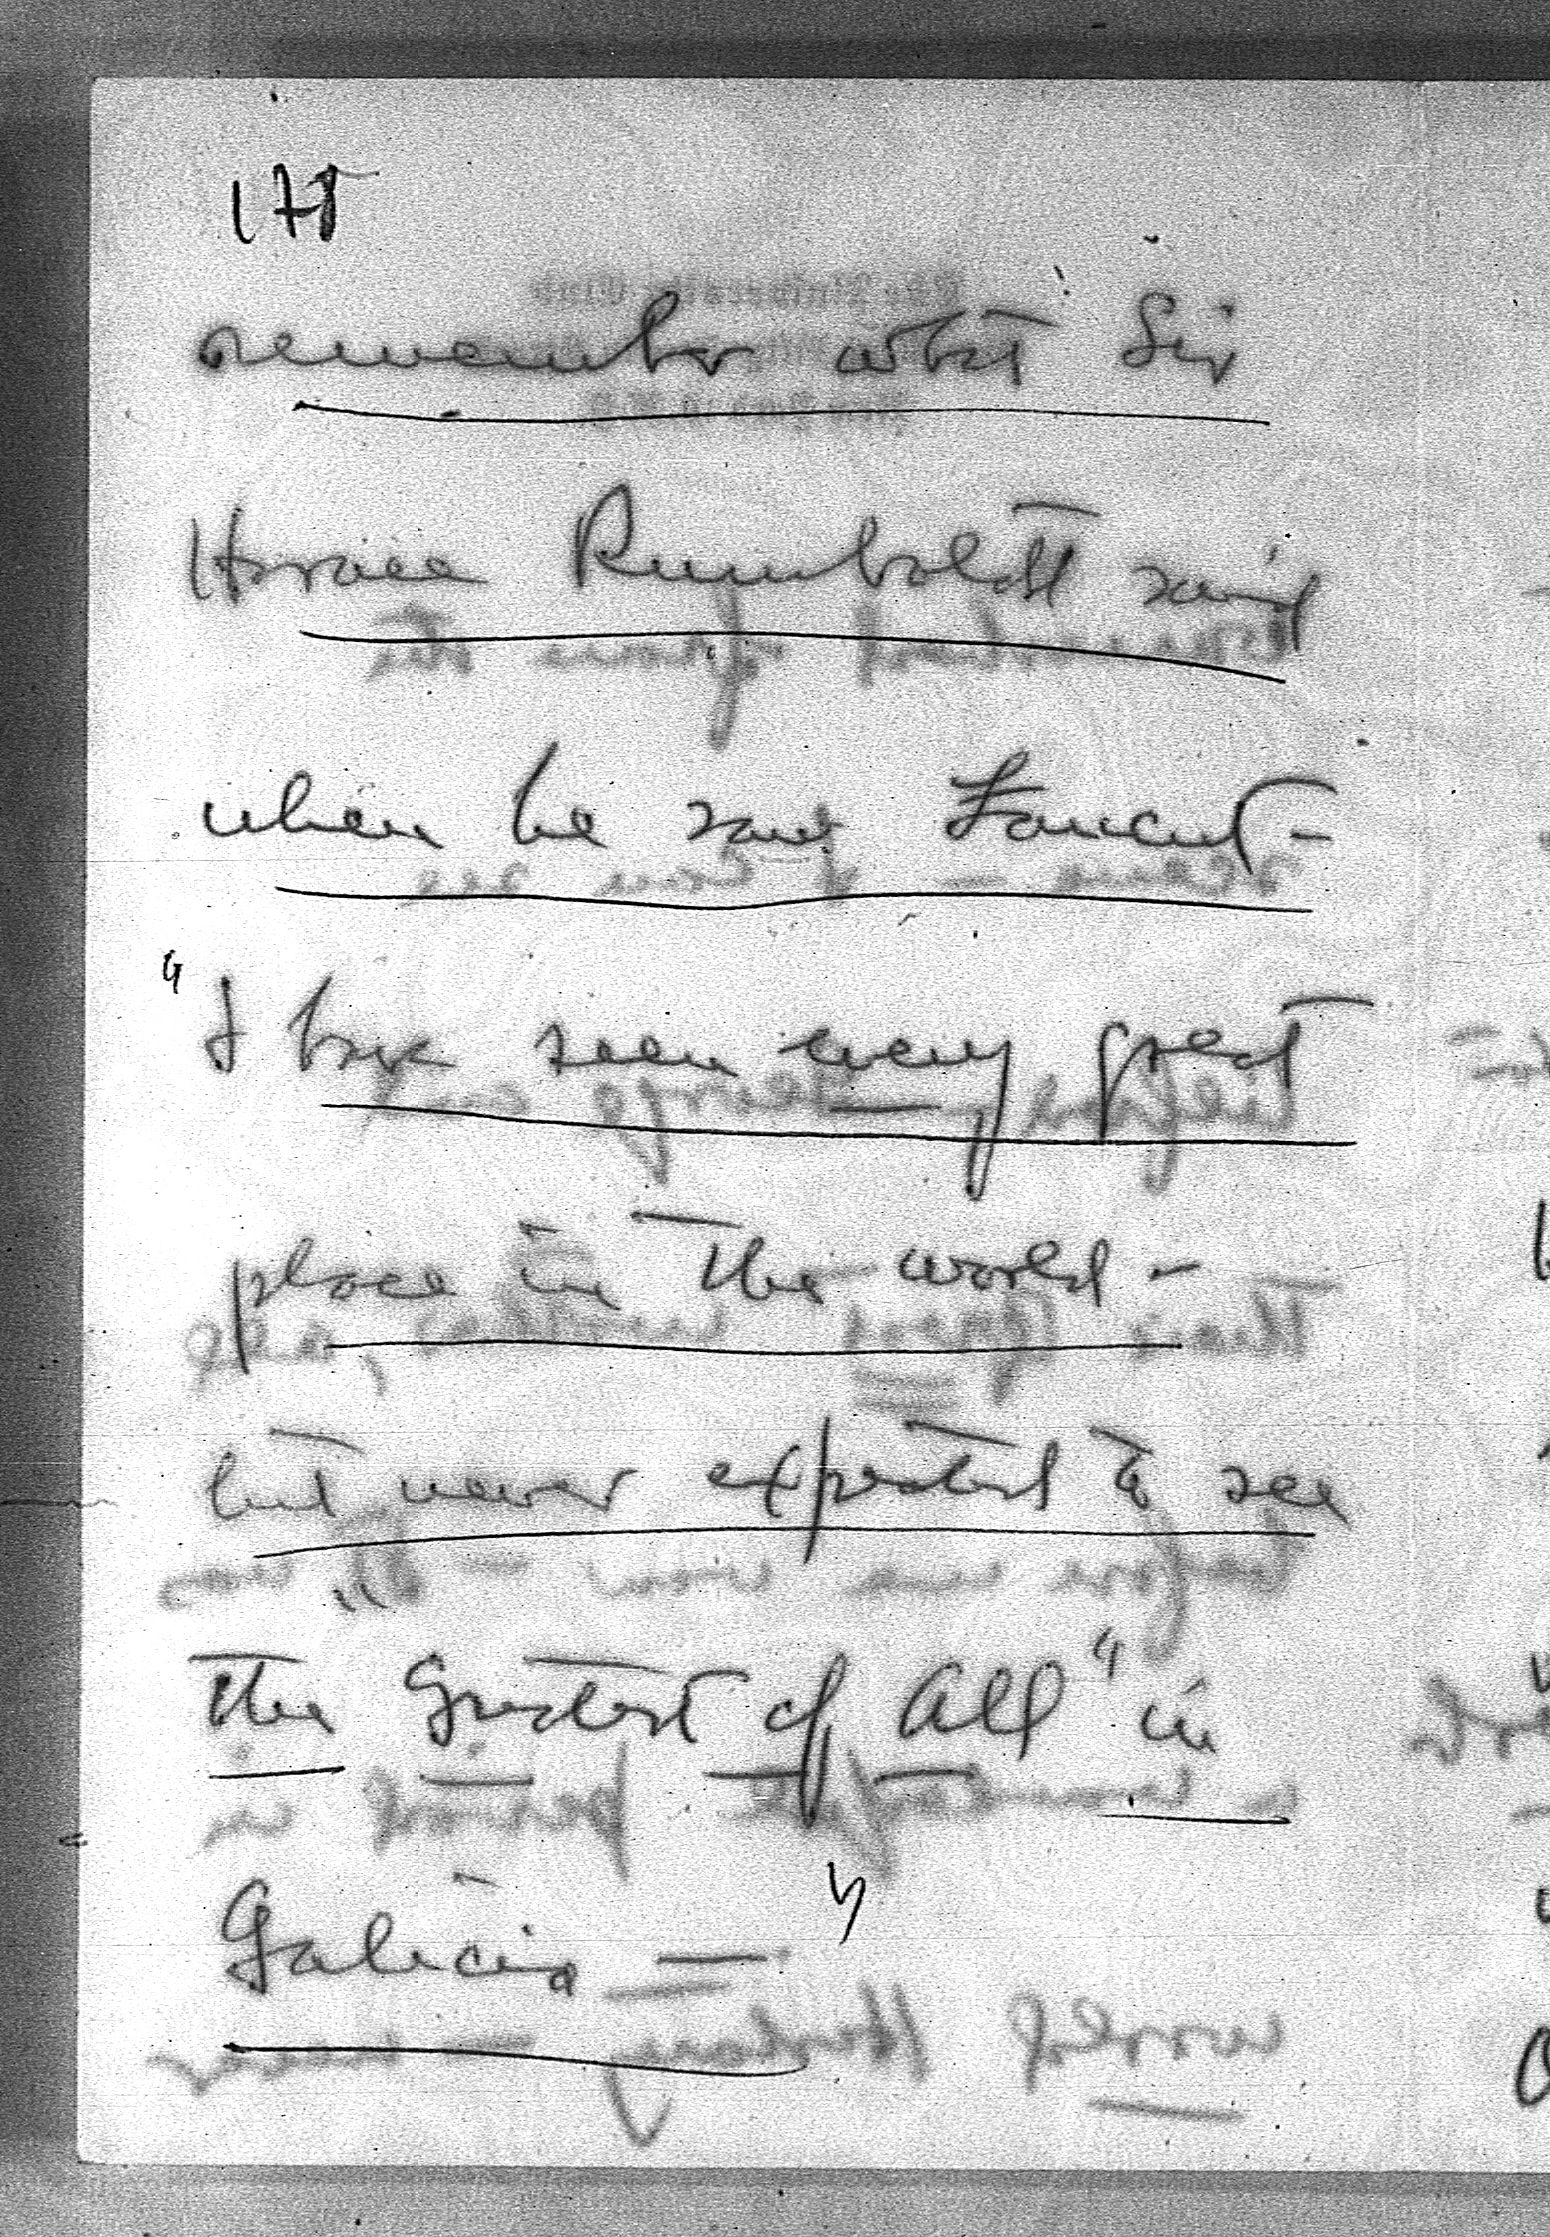 175
remember what Sir
Horace Rumboldt said
when he saw Lancut -
"I have seen every great
place in the world -
but never expected to see
"the Greatest of All" in
Galicia — "